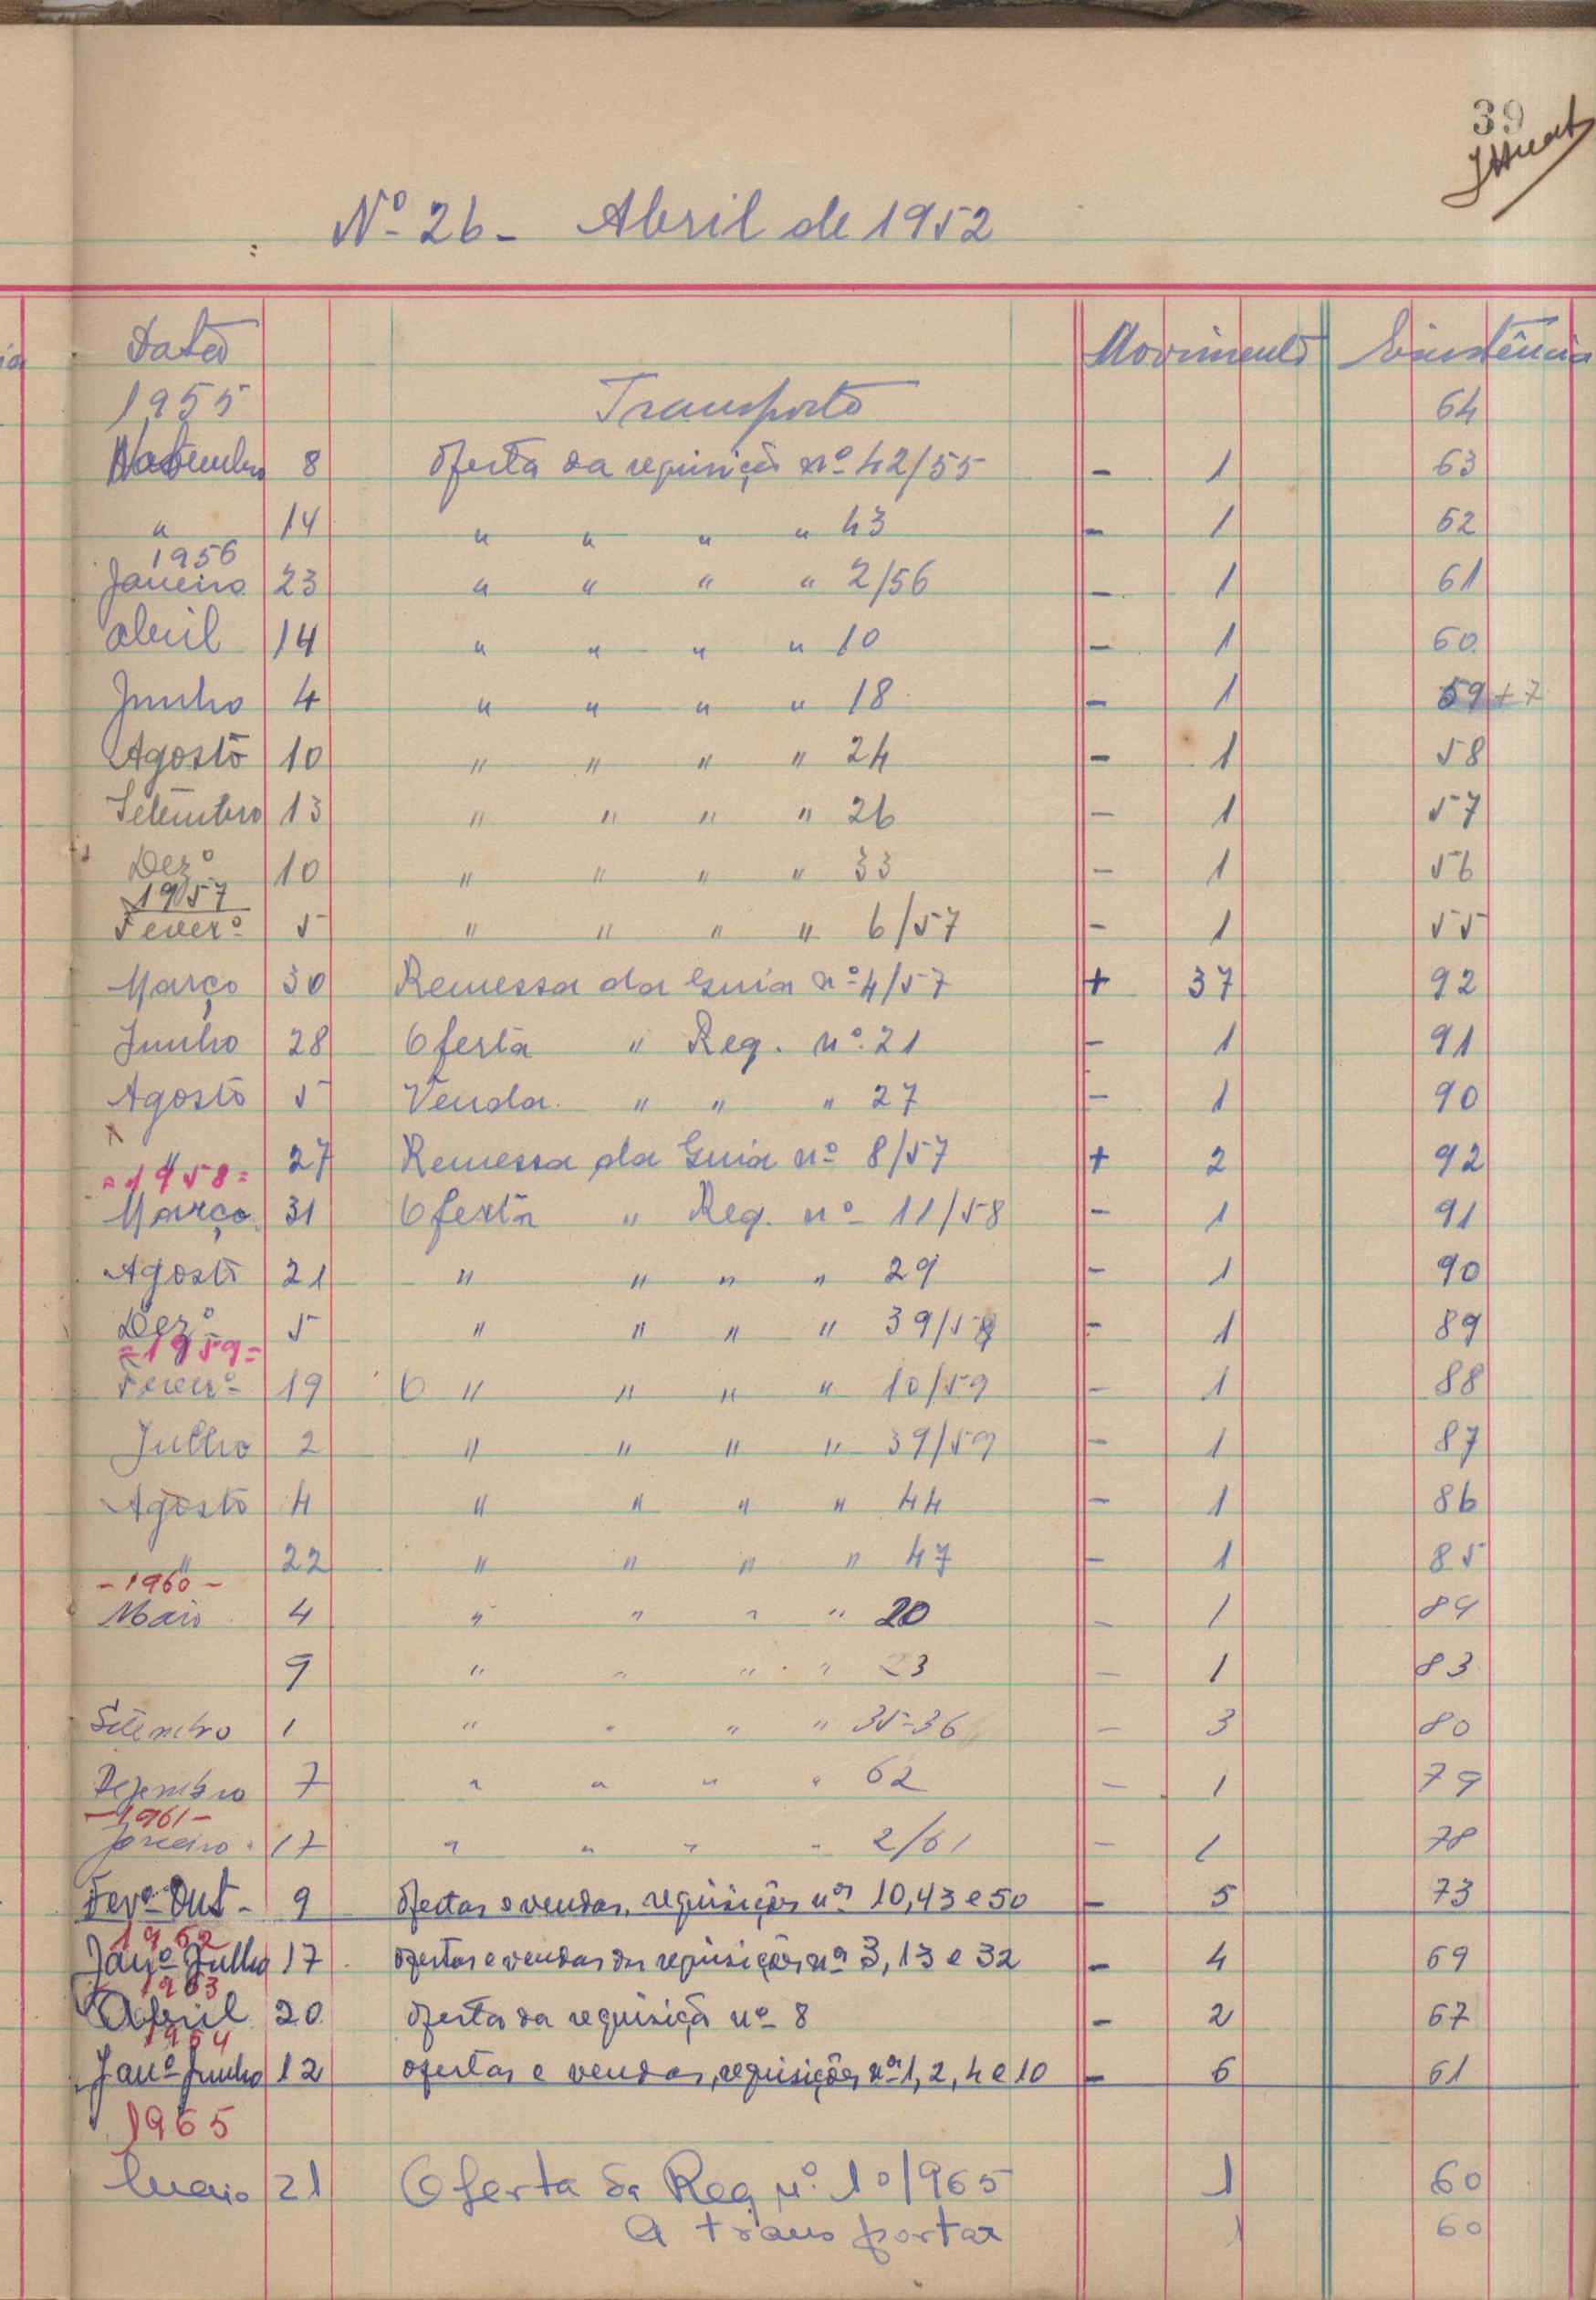 39
Nº 26 - Abril de 1952
Data Movimento Existência
1955 Transporte 64
Novembro 8 Oferta da requisição nº 42/55 - 1 63
" 14 " " " " 43 - 1 62
1956
Janeiro 23 " " " " 2/56 - 1 61
Abril 14 " " " " 10 - 1 60
Junho 4 " " " " 18 - 1 59 + 7
Agosto 10 " " " " 24 - 1 58
Setembro 13 " " " " 26 - 1 57
Dezº 10 " " " " 33 - 1 56
1957
Feverº 5 " " " " 6/57 - 1 55
Março 30 Remessa da Guia nº 4/57 + 37 92
Junho 28 Oferta " Req. nº 21 - 1 91
Agosto 5 Venda " " " 27 - 1 90
" 27 Remessa da Guia nº 8/57 + 2 92
= 1958 =
Março 31 Oferta " Req. nº 11/58 - 1 91
Agosto 21 " " " " 29 - 1 90
Dezº 5 " " " " 39/58 - 1 89
= 1959 =
Feverº 19 O " " " " 10/59 - 1 88
Julho 2 " " " " 39/59 - 1 87
Agosto 4 " " " " 44 - 1 86
" 22 " " " " 47 - 1 85
- 1960 -
Maio 4 " " " " 20 - 1 84
9 " " " " 23 - 1 83
Setembro 1 " " " " 35-36 - 3 80
Dezembro 7 " " " " 62 - 1 79
- 1961 -
Janeiro 17 " " " " 2/61 - 1 78
Fevº Out - 9 ofertas e vendas, requisições nºs 10, 43 e 50 - 5 73
1962
Janº Julho 17 ofertas e vendas das requisições nºs 3, 13 e 32 - 4 69
1963
Abril 20 oferta da requisição nº 8 - 2 67
1964
Janº Junho 12 ofertas e vendas, requisições nºs 1, 2, 4 e 10 - 6 61
1965
Maio 21 Oferta da Req nº 10/965 1 60
A transportar 1 60